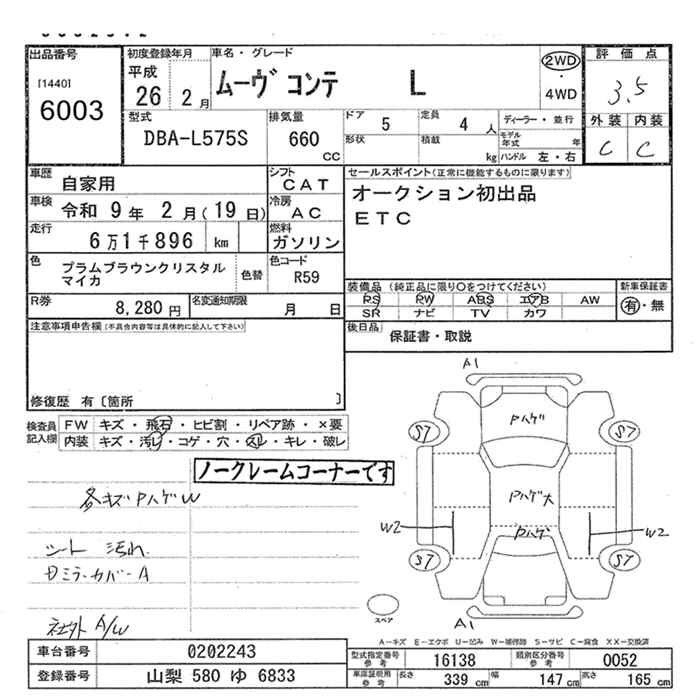 出品番号
[1440]
6003
初度登録年月
平成
26 2 月
車名・グレード
ムーヴ コンテ L
2WD
・
4WD
評価点
3.5
外装 内装
C C
型式
DBA-L575S
排気量
660 CC
ドア
5
定員
4 人
形状
積載
kg
ディーラー・並行
モデル年式 年
ハンドル 左・右
車歴
自家用
車検
令和 9 年 2 月(19 日)
走行
6 万 1 千 896 km
シフト
CAT
冷房
AC
燃料
ガソリン
色
プラムブラウンクリスタル
マイカ
色替
色コード
R59
R券
8,280 円
名変通知期限
月 日
セールスポイント(正常に機能するものに限ります)
オークション初出品
ETC
装備品(純正品に限り○をつけてください)
PS PW ABS エアB AW
SR ナビ TV カワ
新車保証書
有・無
後日品
保証書・取説
注意事項申告欄(不具合内容等は具体的に記入して下さい)
修復歴 有〔箇所 〕
検査員
記入欄
FW キズ・飛石・ヒビ割・リペア跡・×要
内装 キズ・汚レ・コゲ・穴・スレ・キレ・破レ
ノークレームコーナーです
各キズ PハゲW
シート 汚れ
Dミラーカバー A
社外 A/W
A1
Pハゲ
S7
S7
Pハゲ大
Pハゲ
W2
W2
S7
S7
スペア
A1
A-キズ E-エクボ U-凹み W-補修跡 S-サビ C-腐食 XX-交換済
車台番号
0202243
登録番号
山梨 580 ゆ 6833
型式指定番号
参考
16138
類別区分番号
参考
0052
車庫証明用
参考
長さ 339 cm
幅 147 cm
高さ 165 cm